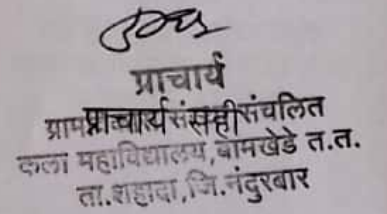 प्राचार्य
प्राचार्य सही
संचलित
कला महाविद्यालय, बामखेडे त.त.
ता.शहादा, जि.नंदुरबार